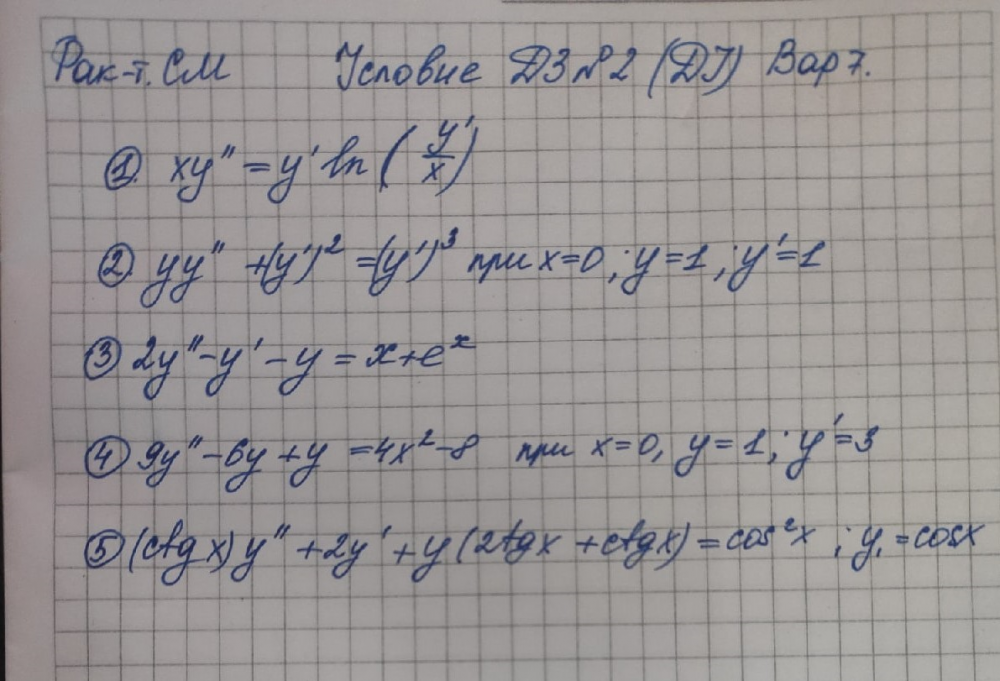 Рак-т. СМ Условие ДЗ №2 (ДУ) Вар 7.
① xy" = y' ln (y'/x)
② yy" + (y')² = (y')³ при x=0 ; y=1 ; y'=1
③ 2y" - y' - y = x + eˣ
④ 9y" - 6y + y = 4x² - 8 при x=0, y=1 ; y'=3
⑤ (ctg x) y" + 2y' + y (2tg x + ctg x) = cos²x ; y₁ = cosx